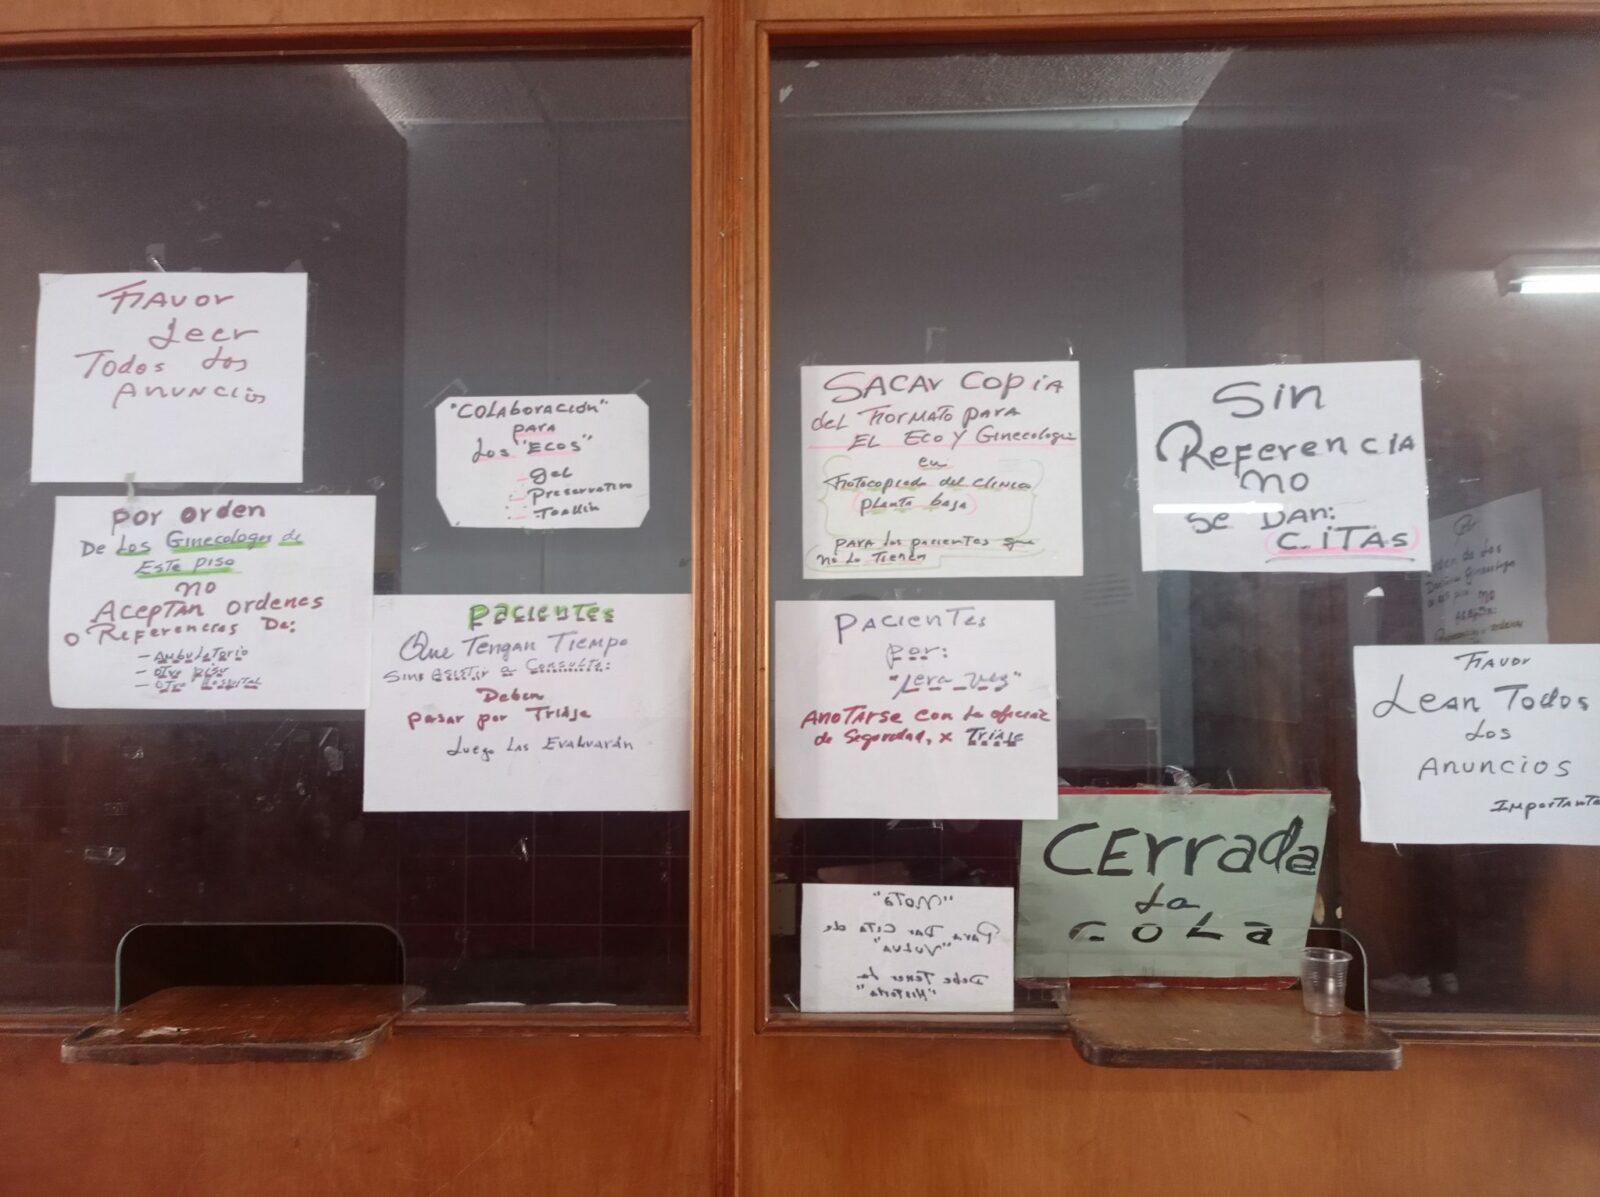 Favor
Leer
Todos Los
Anuncios
por orden
De Los Ginecologos de
Este piso
no
Aceptan ordenes
o Referencias De:
- Ambulatorio
- otro piso
- otro Hospital
"Colaboración"
para
Los "Ecos"
- gel
- Preservativo
- Toallin
pacientes
Que Tengan Tiempo
Sins asistir a Consulta:
Deben
pasar por Triaje
Luego Las Evaluarán
Sacar copia
del Formato para
El Eco y Ginecologia
en
Fotocopiado del clinico
planta baja
para los pacientes que
no lo tienen
Sin
Referencia
no
se Dan:
Citas
Pacientes
por:
"1era vez"
Anotarse con la oficial
de Seguridad, x Triaje
Favor
Lean Todos
Los
Anuncios
Importante
Cerrada
La
Cola
"Nota"
Para Dar Cita de
"Vulva"
Debe Tener La
"Historia"
Por
orden de los
Ginecologo
no
Acepta: